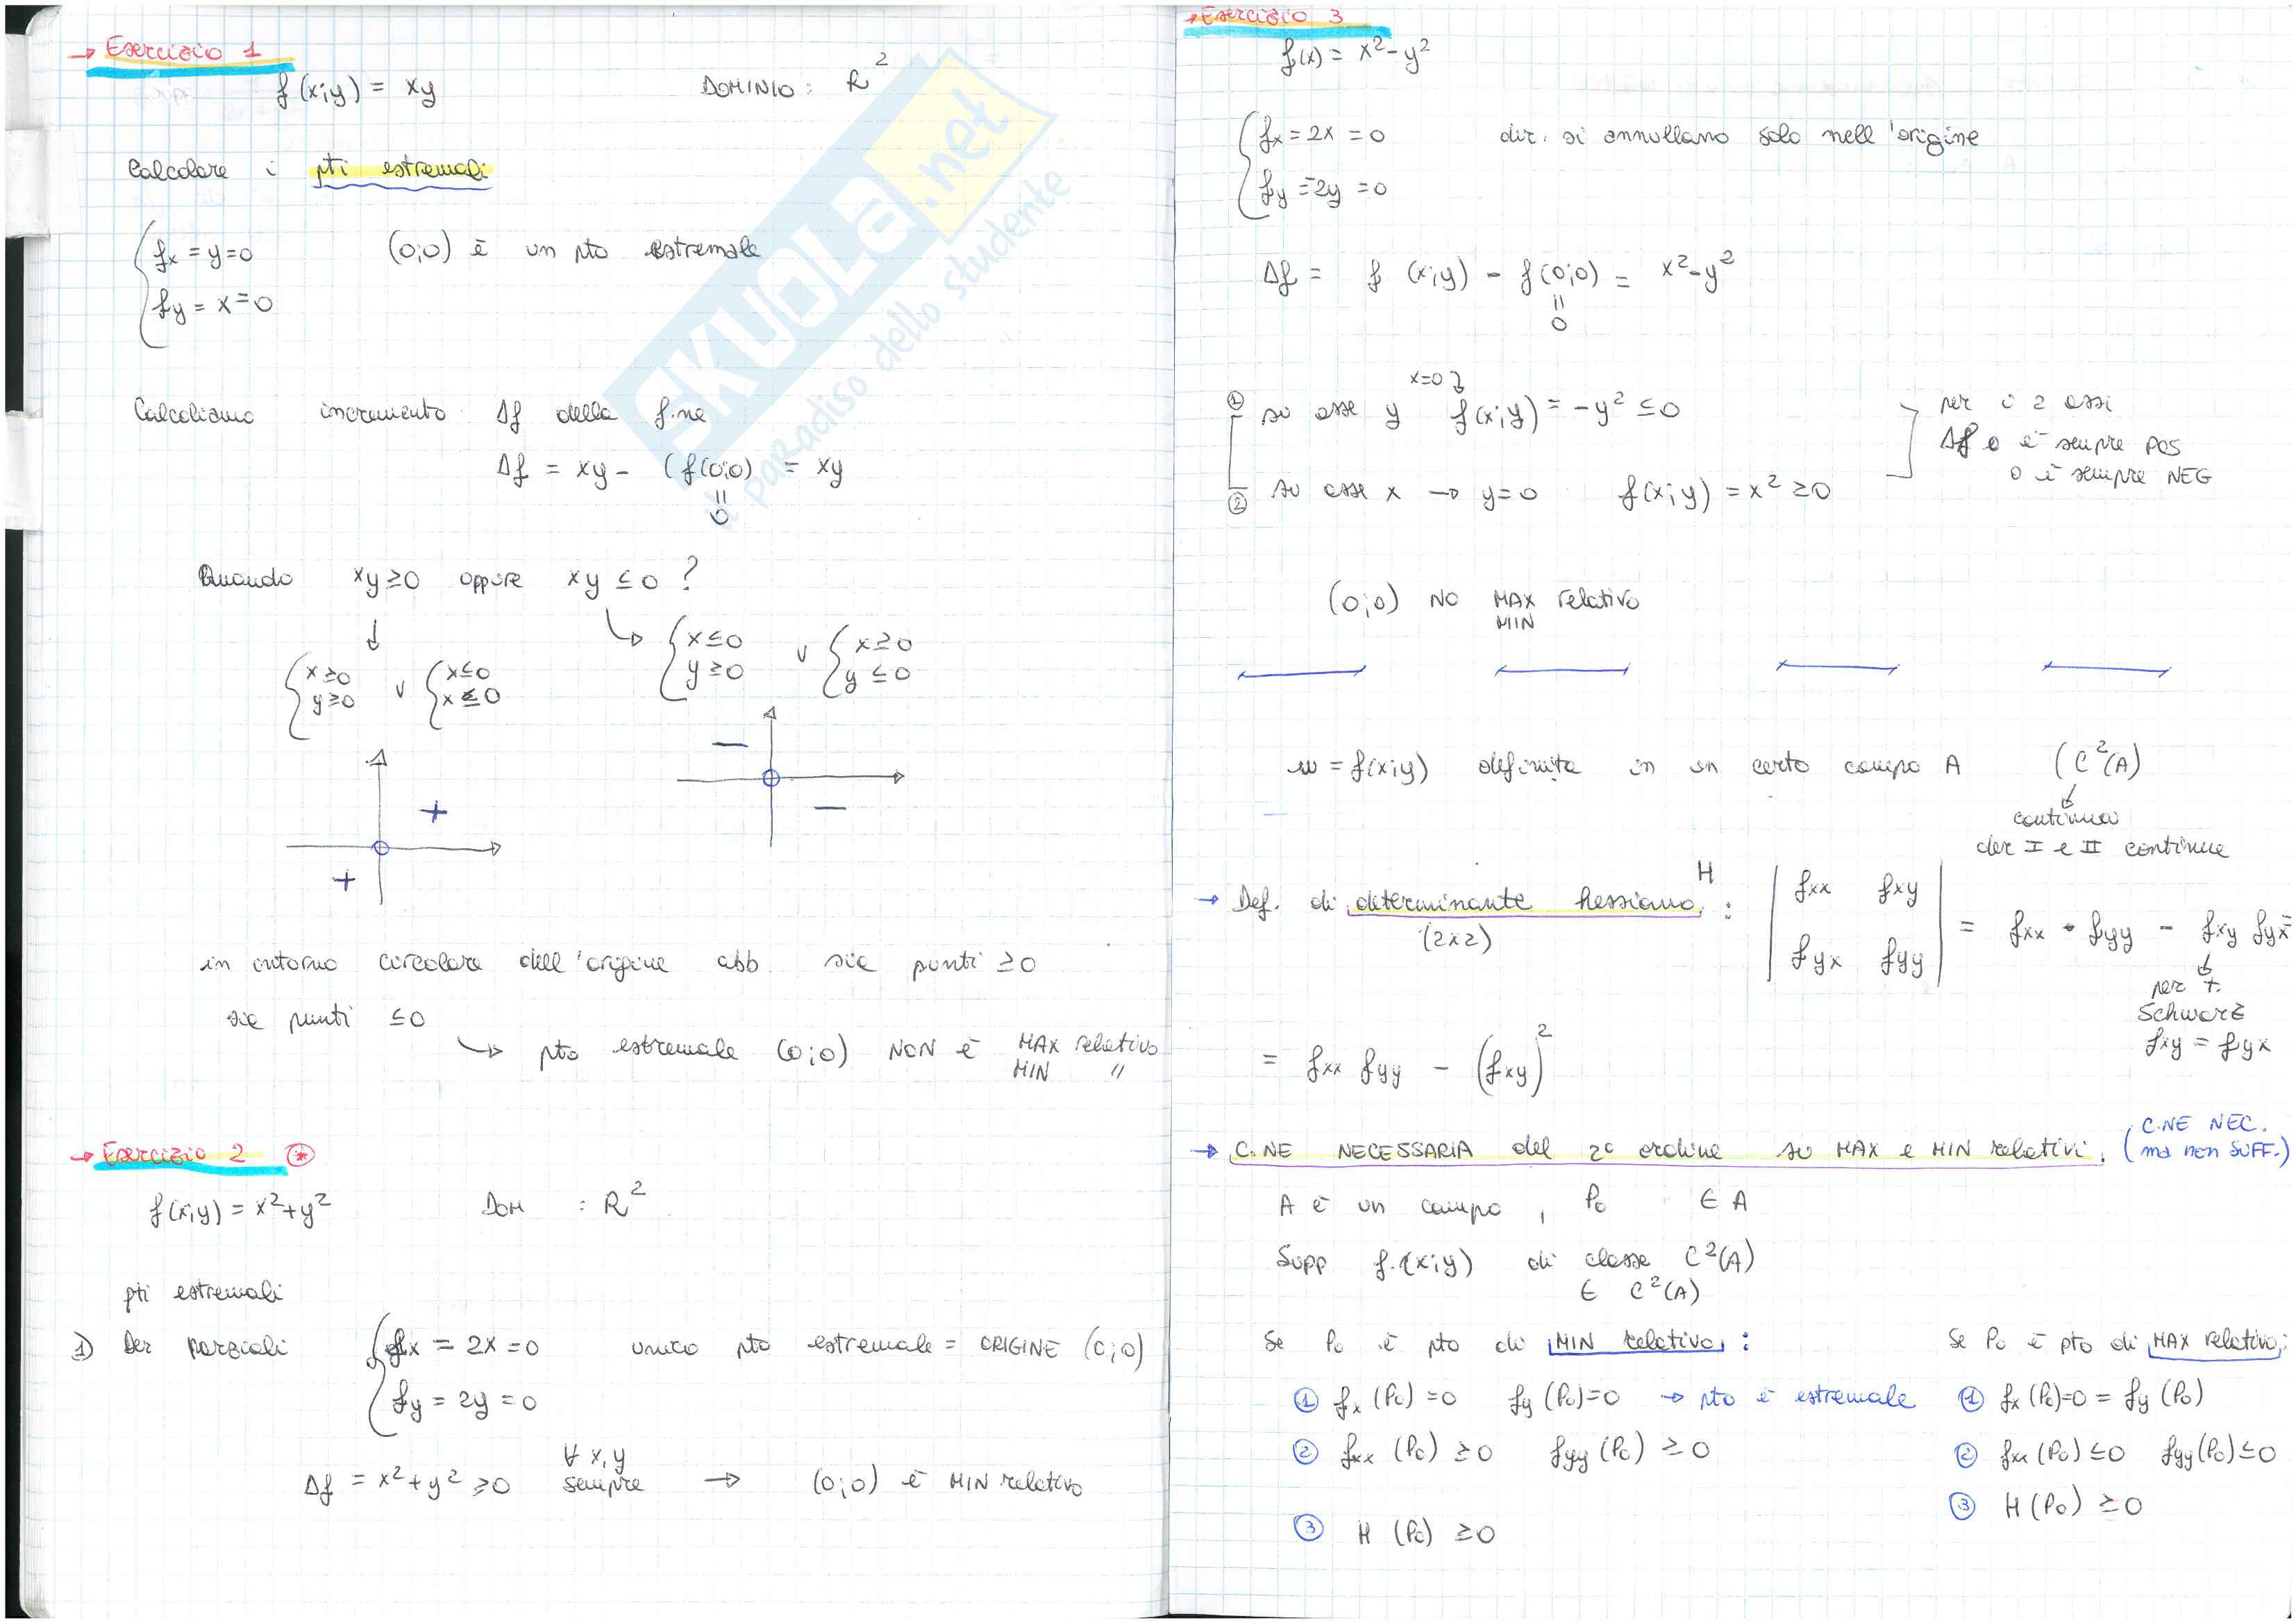 → Esercizio 1
f(x;y) = xy DOMINIO: R²
Calcolare i pti estremali
{ fx = y=0 (0;0) è un pto estremale
fy = x=0
Calcoliamo incremento Δf della f.ne
Δf = xy - (f(0;0) = xy
=
0
Quando xy≥0 oppure xy ≤0 ?
{ x≥0 y≥0 v { x≤0 x≤0
{ x≤0 y≥0 v { x≥0 y≤0
+
+
−
−
in intorno circolare dell'origine abb. sia punti ≥0
sia punti ≤0
↳ pto estremale (0;0) NON è MAX relativo
MIN "
→ Esercizio 2 *
f(x;y) = x²+y² DOM : R²
pti estremali
1) Der parziali { fx = 2x=0 unico pto estremale = ORIGINE (0;0)
fy = 2y=0
Δf = x²+y² ≥0 ∀ x,y sempre → (0;0) è MIN relativo
→ Esercizio 3
f(x) = x²-y²
{ fx = 2x =0 dir. si annullano solo nell'origine
fy =-2y =0
Δf = f (x;y) - f(0;0) = x²-y²
=
0
x=0
① su asse y f(x;y) = -y² ≤0
② su asse x → y=0 f(x;y) = x² ≥0
per i 2 assi
Δf o è sempre POS
o è sempre NEG
(0;0) NO MAX relativo
MIN
w = f(x;y) definita in un certo campo A (C²(A)
continua
der I e II continue
→ Def. di determinante hessiano H : | fxx fxy fyx fyy | = fxx · fyy - fxy fyx =
(2x2)
per t.
Schwarz
fxy = fyx
= fxx fyy - (fxy)²
→ C.NE NECESSARIA del 2° ordine su MAX e MIN relativi. (C.NE NEC. ma non SUFF.)
A è un campo, P₀ ∈ A
Supp f.(x;y) di classe C²(A)
∈ C²(A)
Se P₀ è pto di MIN relativo :
① fx (P₀) =0 fy (P₀)=0 → pto è estremale
② fxx (P₀) ≥0 fyy (P₀) ≥0
③ H (P₀) ≥0
Se P₀ è pto di MAX relativo:
① fx (P₀)=0 = fy (P₀)
② fxx (P₀) ≤0 fyy(P₀) ≤0
③ H (P₀) ≥0
SKUOLA.net
il paradiso dello studente